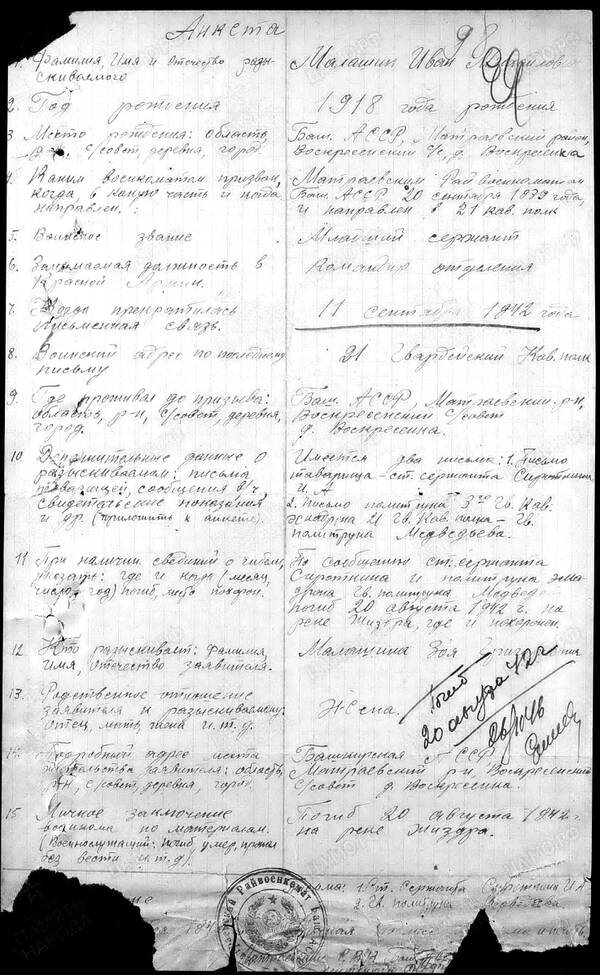 Анкета
1. Фамилия, Имя и Отчество разы-
скиваемого
Малашин Иван
2. Год рождения
1918 года рождения
3. Место рождения: область,
с/совет, деревня, город.
Баш. АССР, Матраевский район,
Воскресенский с/с, д. Воскресенка
4. Каким военкоматом призван,
когда в какую часть и когда
направлен.
Матраевским Райвоенкоматом
Баш. АССР 20 сентября 1939 года,
и направлен в 21 кав. полк
5. Воинское звание
Младший сержант
6. Занимаемая должность в
Красной Армии.
Командир отделения
7. Когда прекратилась
письменная связь.
11 сентября 1942 года
8. Воинский адрес по последнему
письму
21 Гвардейский Кав. полк
9. Где проживал до призыва:
область, р-н, с/совет, деревня,
город.
Баш. АССР, Матраевский р-н,
Воскресенский с/совет
д. Воскресенка.
10. Дополнительные данные о
разыскиваемом: письма
товарищей, сообщения в/ч,
свидетельские показания
и др. (приложить к анкете).
Имеется два письма: 1. Письмо
товарища - ст. сержанта Сироткина
И. А
2. письмо политрука 3го Гв. Кав.
эскадрона 21 Гв. Кав. полка - Гв.
политрука Медведьева.
11. При наличии сведений о гибели,
указать: где и когда (месяц,
число, год) погиб, место похорон.
По сообщению ст. сержанта
Сироткина и политрука эска-
дрона Гв. политрука
погиб 20 августа 1942 г. на
реке Жиздра, где и похоронен.
12. Кто разыскивает: Фамилия,
имя, отчество заявителя.
Малашина Зоя
13. Родственное отношение
заявителя к разыскиваемому:
отец, мать, жена и т.д.
Жена.
Погиб
20 августа 42 г
26/X 46
14. Подробный адрес места
жительства заявителя: область,
р-н, с/совет, деревня, город.
Башкирская АССР
Матраевский р-н, Воскресенский
с/совет д. Воскресенка.
15. Личное заключение
военкома по материалам.
(Военнослужащий: погиб, умер, пропал
без вести и т.д).
Погиб 20 августа 1942 г.
на реке Жиздра.
1. Ст. Сержанта Сироткина И А
2. Гв. политрука
Райвоенкомат